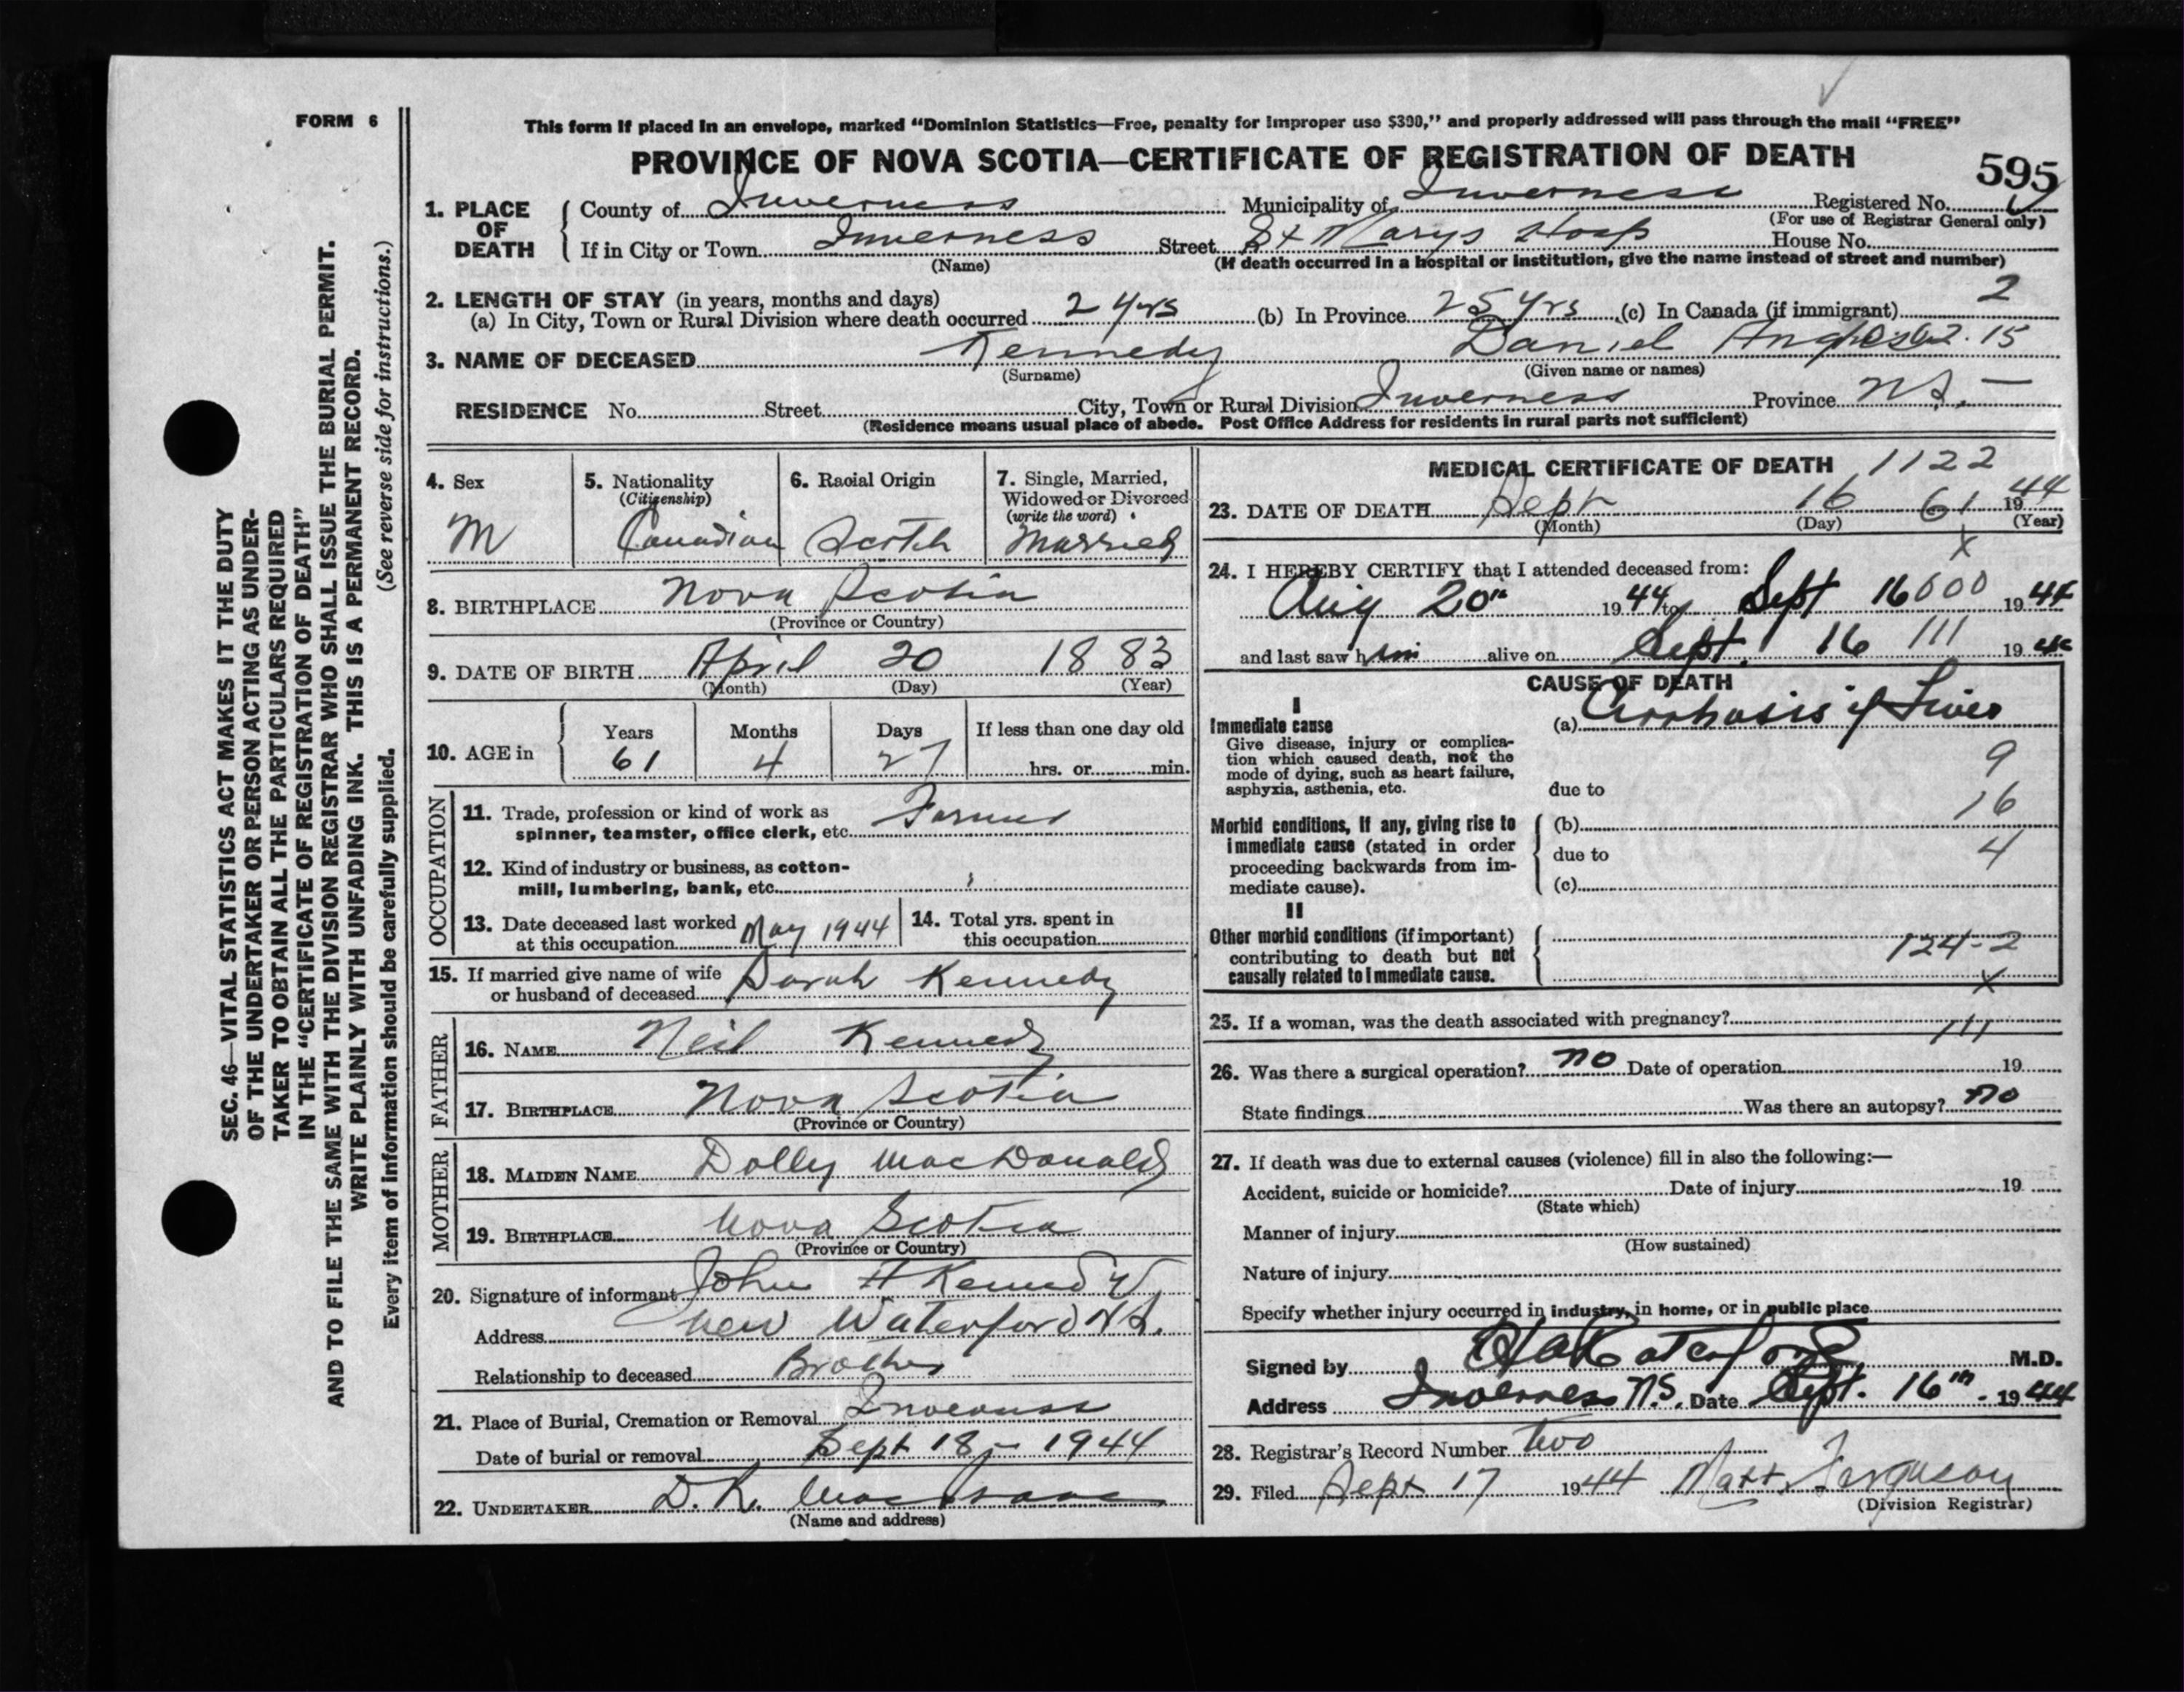 FORM 6
This form if placed in an envelope, marked “Dominion Statistics—Free, penalty for improper use $300,” and properly addressed will pass through the mail “FREE”
PROVINCE OF NOVA SCOTIA—CERTIFICATE OF REGISTRATION OF DEATH
595
1. PLACE OF DEATH
County of Inverness Municipality of Inverness Registered No.
(For use of Registrar General only)
If in City or Town Inverness Street St Marys Hosp House No.
(Name) (If death occurred in a hospital or institution, give the name instead of street and number)
2. LENGTH OF STAY (in years, months and days)
(a) In City, Town or Rural Division where death occurred 2 yrs (b) In Province 25 yrs (c) In Canada (if immigrant) 2
3. NAME OF DECEASED Kennedy Daniel Angus 15
(Surname) (Given name or names)
RESIDENCE No. Street City, Town or Rural Division Inverness Province N.S. —
(Residence means usual place of abode. Post Office Address for residents in rural parts not sufficient)
4. Sex M
5. Nationality (Citizenship) Canadian
6. Racial Origin Scotch
7. Single, Married, Widowed or Divorced (write the word) Married
8. BIRTHPLACE Nova Scotia
(Province or Country)
9. DATE OF BIRTH April 20 1883
(Month) (Day) (Year)
10. AGE in Years 61 Months 4 Days 27 If less than one day old hrs. or min.
OCCUPATION
11. Trade, profession or kind of work as spinner, teamster, office clerk, etc. Farmer
12. Kind of industry or business, as cotton-mill, lumbering, bank, etc.
13. Date deceased last worked at this occupation May 1944
14. Total yrs. spent in this occupation
15. If married give name of wife or husband of deceased Sarah Kennedy
FATHER
16. NAME Neil Kennedy
17. BIRTHPLACE Nova Scotia
(Province or Country)
MOTHER
18. MAIDEN NAME Dolly MacDonald
19. BIRTHPLACE Nova Scotia
(Province or Country)
20. Signature of informant John H Kennedy
Address New Waterford N.S.
Relationship to deceased Brother
21. Place of Burial, Cremation or Removal Inverness
Date of burial or removal Sept 18 - 1944
22. UNDERTAKER D.K. MacIsaac
(Name and address)
MEDICAL CERTIFICATE OF DEATH 1122
23. DATE OF DEATH Sept 16 61 1944
(Month) (Day) (Year)
x
24. I HEREBY CERTIFY that I attended deceased from:
Aug 20th 1944 to Sept 16 000 1944
and last saw him alive on Sept. 16 111 1944
CAUSE OF DEATH
I
Immediate cause (a) Cirrhosis of Liver
Give disease, injury or complication which caused death, not the mode of dying, such as heart failure, asphyxia, asthenia, etc.
9
due to
16
Morbid conditions, if any, giving rise to immediate cause (stated in order proceeding backwards from immediate cause).
(b)
due to 4
(c)
II
Other morbid conditions (if important) contributing to death but not causally related to immediate cause.
124-2
x
25. If a woman, was the death associated with pregnancy?
111
26. Was there a surgical operation? no Date of operation 19
State findings Was there an autopsy? no
27. If death was due to external causes (violence) fill in also the following:—
Accident, suicide or homicide? Date of injury 19
(State which)
Manner of injury
(How sustained)
Nature of injury
Specify whether injury occurred in industry, in home, or in public place
Signed by M.D.
Address Inverness N.S. Date Sept. 16th - 1944
28. Registrar's Record Number Two
29. Filed Sept 17 1944 Matt. Ferguson
(Division Registrar)
SEC. 46—VITAL STATISTICS ACT MAKES IT THE DUTY
OF THE UNDERTAKER OR PERSON ACTING AS UNDER-
TAKER TO OBTAIN ALL THE PARTICULARS REQUIRED
IN THE “CERTIFICATE OF REGISTRATION OF DEATH”
AND TO FILE THE SAME WITH THE DIVISION REGISTRAR WHO SHALL ISSUE THE BURIAL PERMIT.
WRITE PLAINLY WITH UNFADING INK. THIS IS A PERMANENT RECORD.
Every item of information should be carefully supplied. (See reverse side for instructions.)